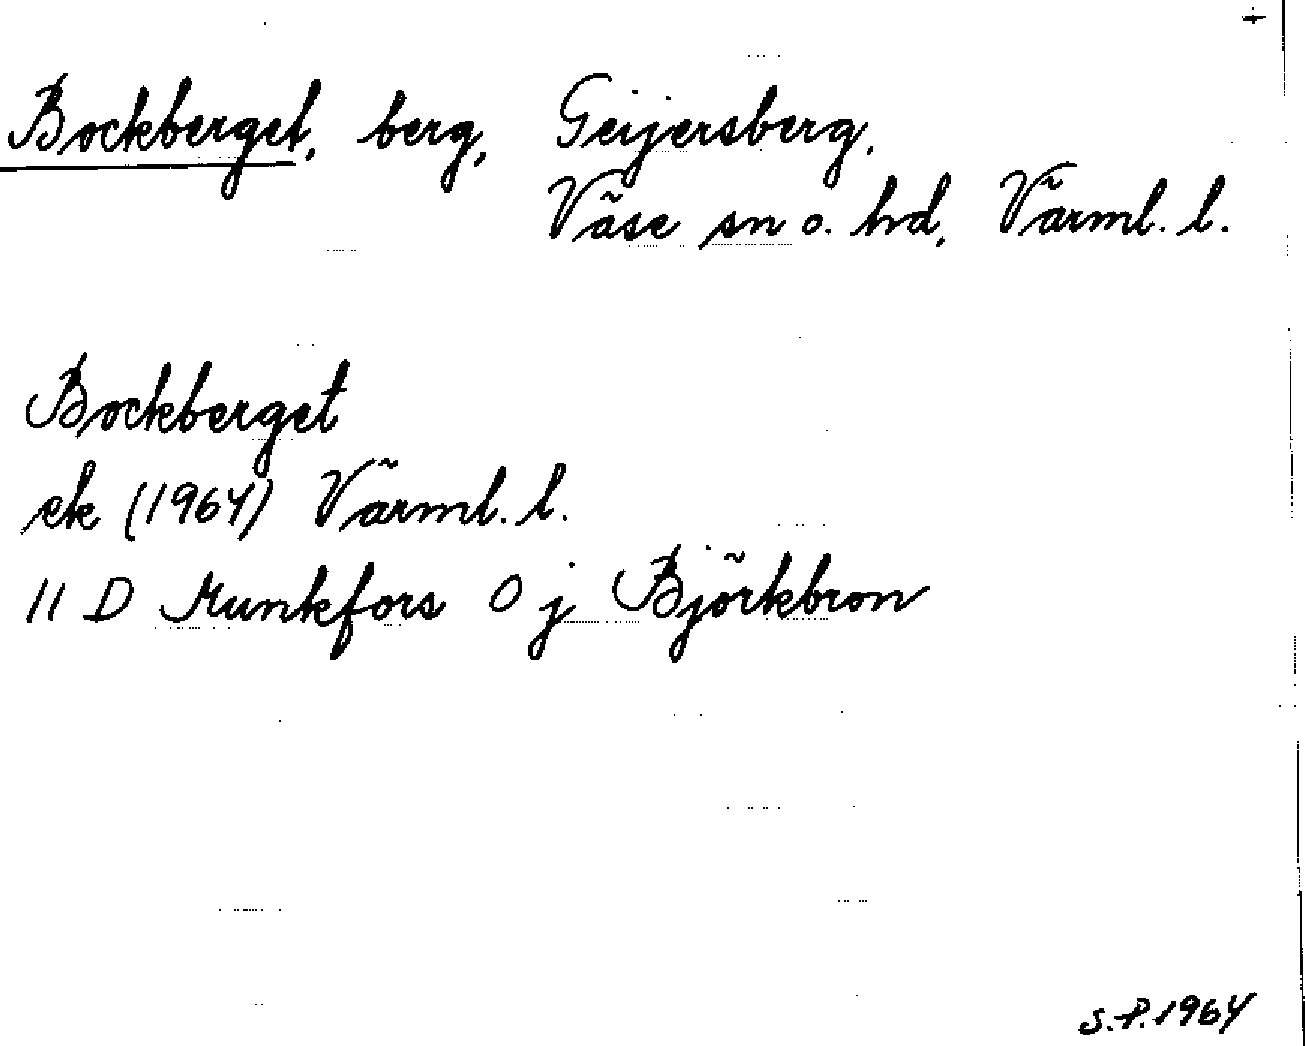 +
Bockberget, berg, Geijersberg,
Väse sn o. hd, Värml. l.
Bockberget
ek (1964) Värml. l.
11 D Munkfors 0 j Björkbron
S.P. 1964